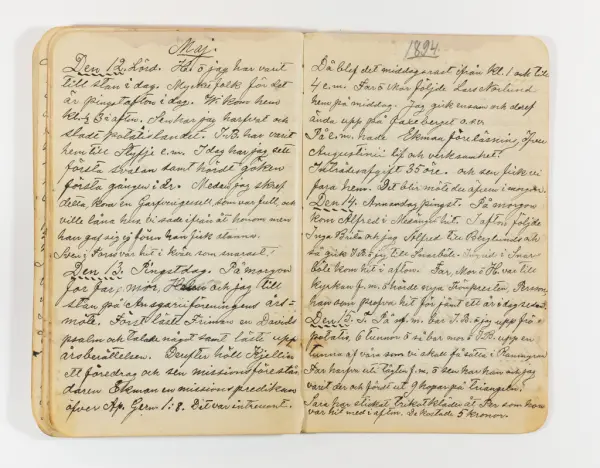 Maj.
Den 12. Lörd. H. o jag har varit
till stan i dag. Mycket folk för det
är pingstafton i dag. Vi kom hem
kl. ½ 3 i afton. Sen har jag harfvat och
sladdat potatislandet. I.B. har varit
hem till e.m. I dag har jag sett
första svalan samt hördt göken
första gången i år. Medan jag skref
detta, kom en Garfvaregesell, som var full, och
ville låna hus vi sade ifrån åt honom men
han gaf sig ej förrn han fick stanna.
Beng Joras var hit i kväll som snarast!
Den 13. Pingstdag. På morgon
for far, mor, H. och jag till
stan på Ansgariiföreningens års-
möte. Först läste Friman en Davids
psalm och talade något samt läste upp
årsberättelsen. Derefter höll Kjellin
ett föredrag och sen missionsförestån
daren Ekman en missionspredikan
öfver Ap. Gern. 1: 8. Det var intressant.
1894.
Då blef det middagsrast ifrån kl. 1 och till
4 e.m. Far o Mor följde Lars Norlund
hem på middag. Jag gick ensam och dref
ända upp på o.s.v.
På e.m. hade Ekman föreläsning öfver
Augustinii lif och verksamhet.
Inträdesafgift 35 öre. och sen fick vi
fara hem. Det blir möte där äfven i morgon
Den 14. Annandag pingst. På morgon
kom Alfred i hit. I afton följde
Inga Brita och jag Alfred till Berglunds och
så gick vi till i Snar
böle kom hit i afton. Far, Mor o H. var till
kyrkan f.m. o hörde nya Komministern, Persson,
han som profva hit för jämt ett år i dag sedan
Den 15. T. På f.m. bar I.B. o jag upp frö
potatis, 6 tunnor o så bar mor o I.B. upp en
tunna af våra som vi skall få sätta i Ranningen
Far har harfva f.m. o sen har han och jag
varit der och fördt ut 9 hopar på triangeln.
Sara har stickat trikotkläder åt Per som hon
var hit med i afton. De kostade 5 kronor.